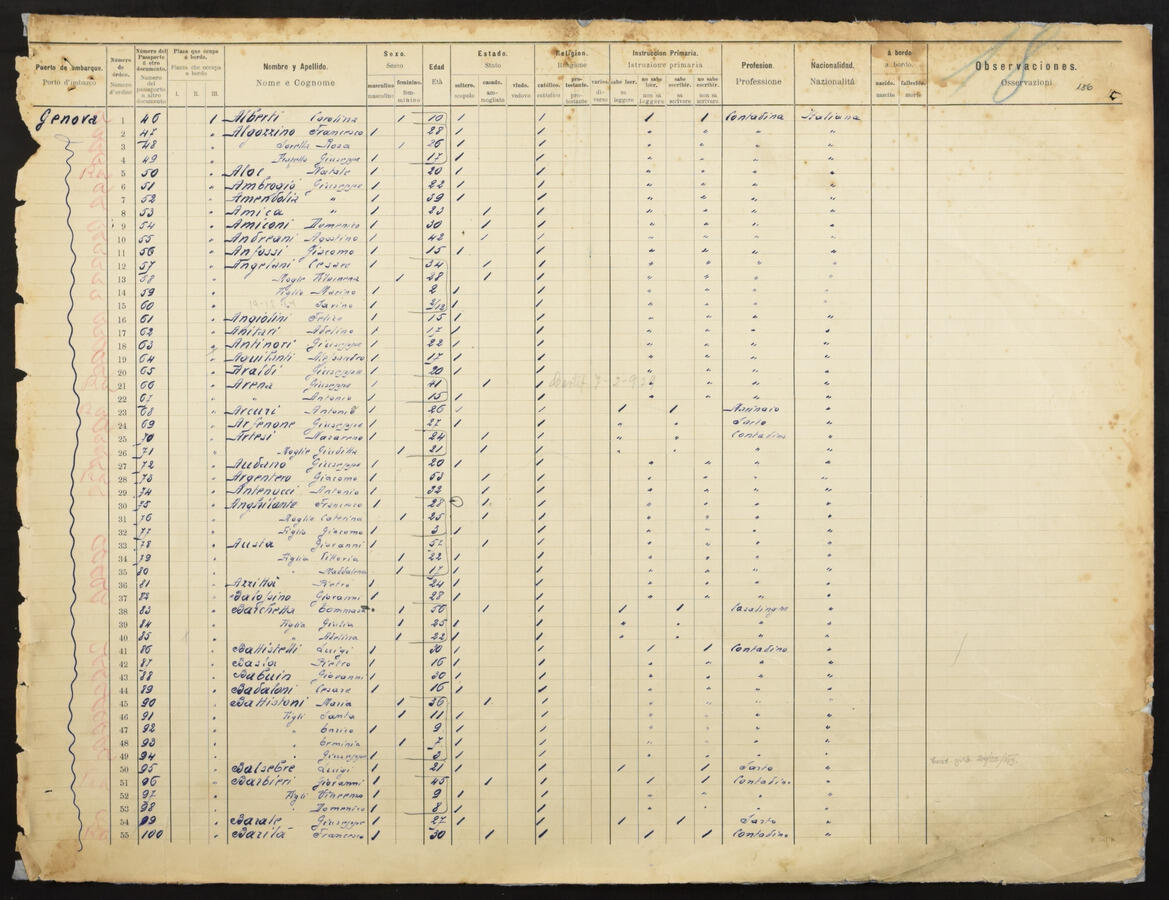 Puerto de embarque.
Porto d'imbarco
Número de órden.
Numero d'ordine
Número del Pasaporte ú otro documento.
Numero del passaporto o altro documento
Plaza que ocupa á bordo.
Piazza che occupa a bordo
I. II. III.
Nombre y Apellido.
Nome e Cognome
Sexo.
Sesso
masculino
maschile
feminino.
femminino
Edad
Età
Estado.
Stato
soltero.
scapolo
casado.
ammogliato
viudo.
vedovo
Religion.
Religione
católico.
cattolico
protestante
varios.
diverse
Instruccion Primaria.
Istruzione primaria
sabe leer.
sa leggere
no sabe leer.
non sa leggere
sabe escribir.
sa scrivere
no sabe escribir.
non sa scrivere
Profesion.
Professione
Nacionalidad.
Nazionalità
á bordo
a bordo.
nacido.
nascito
fallecido.
morto
Observaciones.
Osservazioni
186
Genova 1 46 Alberti Carolina 10 Contadina Italiana
2 47 Algozzino Francesco 28 " "
3 48 Sorella Rosa 26 " "
4 49 Fratello Giuseppe 17 " "
5 50 Aloe Natale 20 " "
6 51 Ambrogio Giuseppe 22 " "
7 52 Amendolia " 39 " "
8 53 Amica " 23 " "
9 54 Amiconi Domenico 30 " "
10 55 Andreani Agostino 42 " "
11 56 Anfossi Giacomo 15 " "
12 57 Angelani Cesare 34 " "
13 58 Moglie Filomena 28 " "
14 59 Figlio Marino 2 " "
15 60 Savino 2/12 " "
16 61 Angiolini Felice 15 " "
17 62 Anitari Adelino 17 " "
18 63 Antinori Giuseppe 22 " "
19 64 Aquilanti Alessandro 17 " "
20 65 Araldi Giuseppe 20 " "
21 66 Arena Giuseppe 41 " "
22 67 " Antonio 15 " "
23 68 Arcuri Antonio 26 Marinaio "
24 69 Arfenone Giuseppe 27 Sarto "
25 70 Artesi Nazareno 24 Contadino "
26 71 Moglie Giuditta 21 " "
27 72 Audano Giuseppe 20 " "
28 73 Argentero Giacomo 53 " "
29 74 Antenucci Antonio 32 " "
30 75 Anghilante Francesco 28 " "
31 76 Moglie Caterina 25 " "
32 77 Figlio Giacomo 3 " "
33 78 Austa Giovanni 57 " "
34 79 Figlia Vittoria 22 " "
35 80 " Maddalena 17 " "
36 81 Pietro 24 " "
37 82 Balossino Giovanni 28 " "
38 83 Barchetta 50 Casalinghe "
39 84 Figlia Giulia 25 " "
40 85 " Adelina 22 " "
41 86 Battistelli Luigi 30 Contadino "
42 87 Basia Pietro 16 " "
43 88 Babuin Giovanni 30 " "
44 89 Badaloni Cesare 16 " "
45 90 Battistoni Maria 36 " "
46 91 Figli Santa 11 " "
47 92 " Enrico 9 " "
48 93 " Erminia 7 " "
49 94 " Giuseppe 3 " "
50 95 Balsebre Luigi 21 Sarto "
51 96 Barbieri Giovanni 45 Contadino "
52 97 Figli Vincenzo 9 " "
53 98 " Domenico 8 " "
54 99 Barale Giuseppe 27 Sarto "
55 100 Barilà Francesco 30 Contadino "